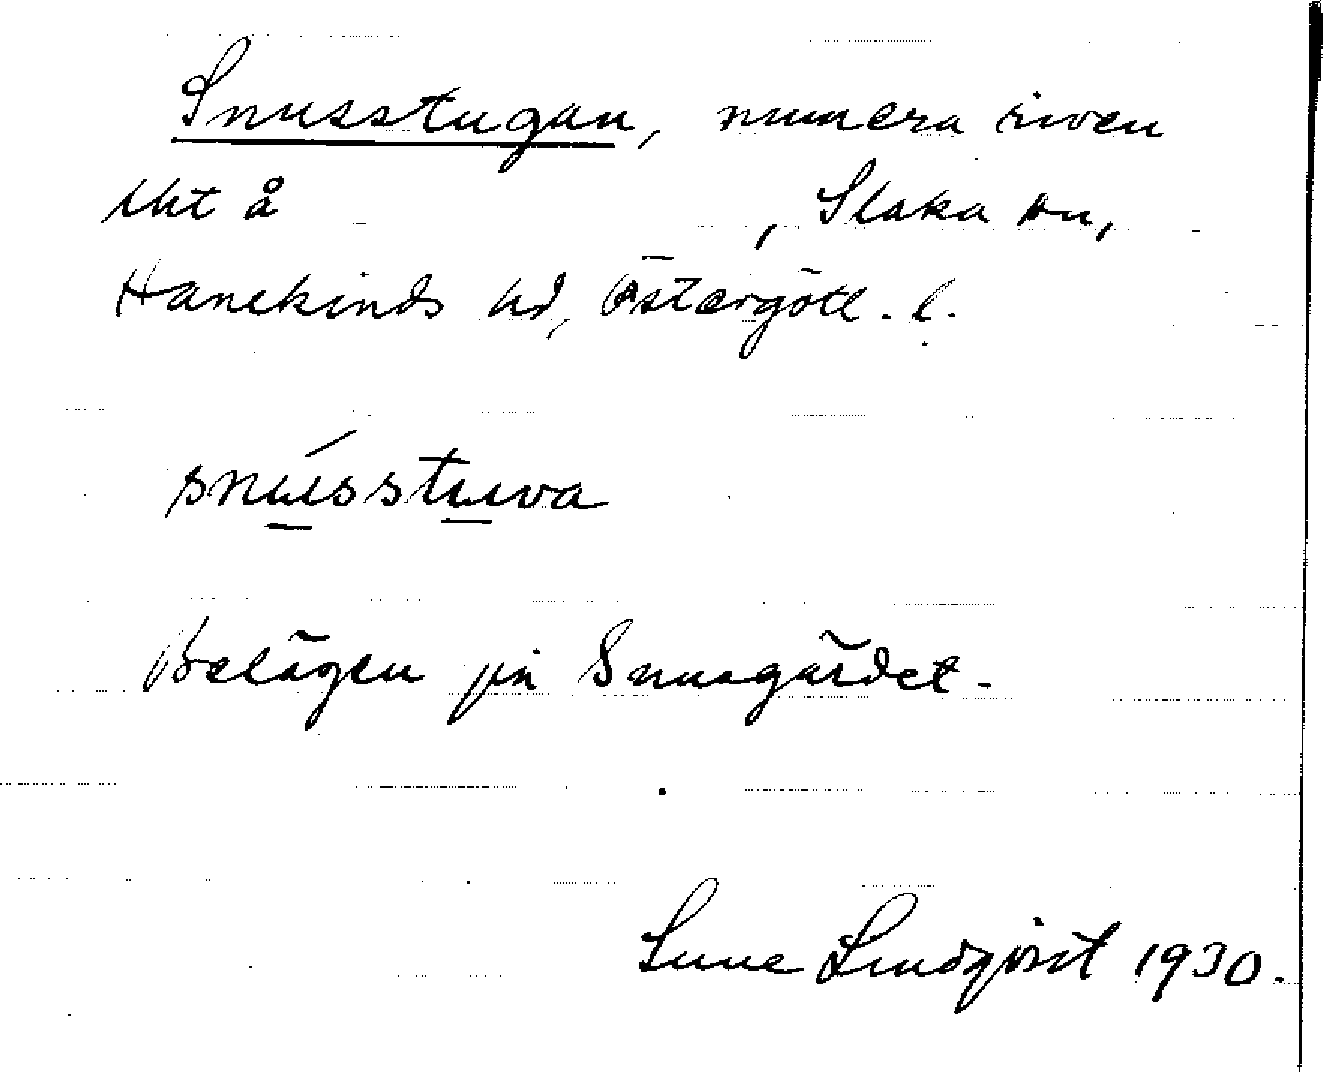 Snusstugan, numera riven
lht å , Slaka sn,
Hanekinds hd, Östergötl. l.
snússtuva
Belägen på Snusgärdet.
Sune Lindqvist 1930.